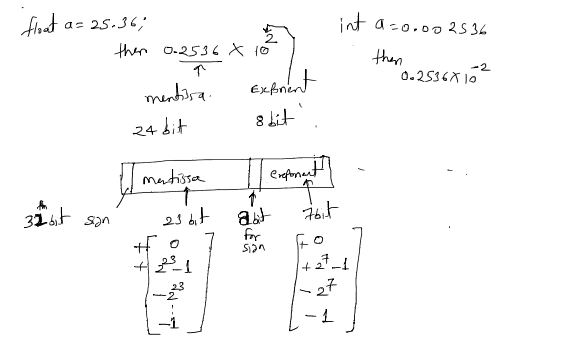 float a = 25.36;
then 0.2536 × 10^2
mentissa.
Exponent
24 bit
8 bit
int a = 0.002536
then
0.2536 × 10^-2
mentissa
exponent
bit sign
23 bit
bit for sign
7 bit
+ 0
+ 2^23 - 1
- 2^23
⋮
- 1
+ 0
+ 2^7 - 1
- 2^7
- 1